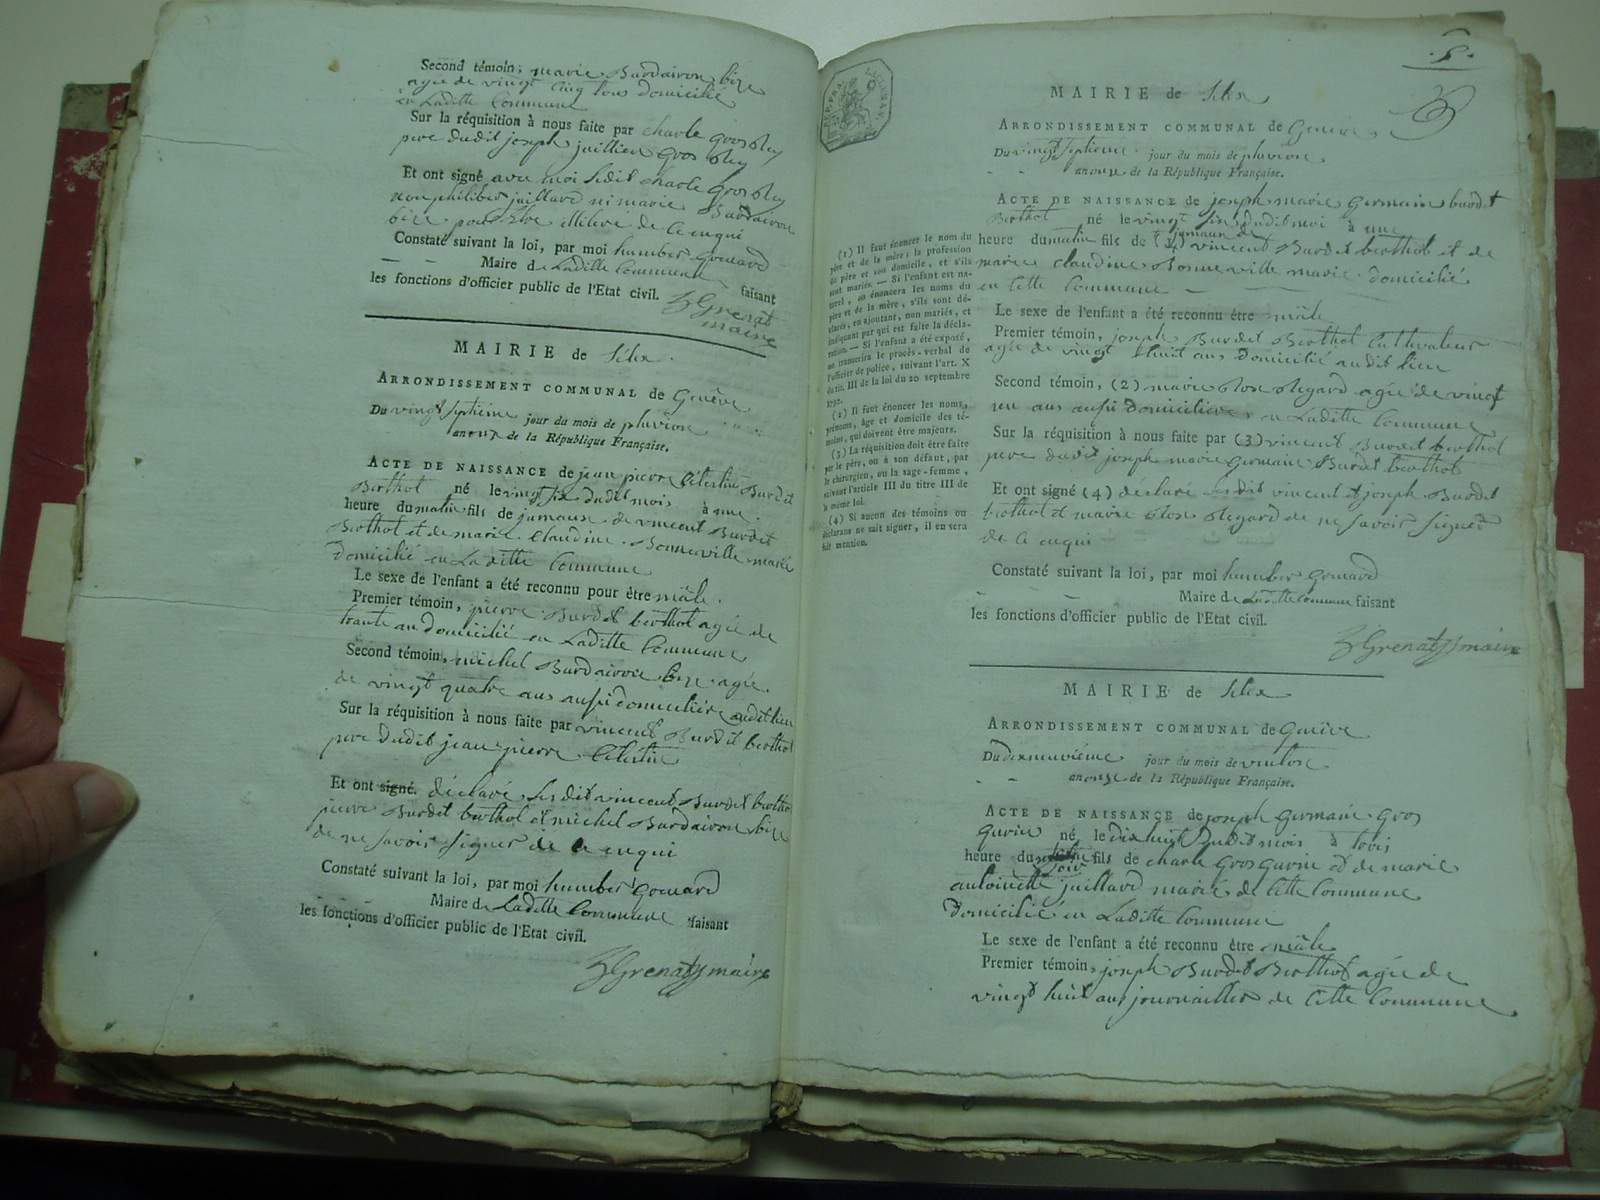 Second témoin, marie Burdairon bize
agée de vingt cinq tous domicilié
en Laditte Commune
Sur la réquisition à nous faite par charle gros
pere dudit joseph juillien gros
Et ont signé avec moi ledit charle gros
non philiber juillard ni marie Burdairon
bize pour être illiteré de ce enqui
Constaté suivant la loi, par moi humber gonard
Maire de Laditte Commune faisant
les fonctions d'officier public de l'Etat civil.
Grenat
maire
MAIRIE de
ARRONDISSEMENT COMMUNAL de Genève
Du vingt septieme jour du mois de pluviose
an onze de la République Française.
ACTE DE NAISSANCE de jean pierre Celestin Burdet
Berthol né le vingt six dudit mois à une
heure du matin fils de jumaux de vincent Burdet
Berthol et de marie Claudine Bonneville marié
domicilié en Laditte Commune
Le sexe de l'enfant a été reconnu pour être mâle.
Premier témoin, pierre Burdet berthol agée de
trante an domicilié en Laditte Commune
Second témoin, michel Burdairon bize agée
de vingt quatre ans aussi domicilié audit lieu
Sur la réquisition à nous faite par vincent Burdet berthol
pere dudit jean pierre Celestin
Et ont signé déclaré les dit vincent Burdet berthol
pierre Burdet berthol et michel Burdairon bize
de ne savoir signer de ce enqui
Constaté suivant la loi, par moi humber gonard
Maire de Laditte Commune faisant
les fonctions d'officier public de l'Etat civil.
Grenat maire
5.
MAIRIE de
ARRONDISSEMENT COMMUNAL de Genève
Du vingt septieme jour du mois de pluviose
an onze de la République Française.
ACTE DE NAISSANCE de joseph marie germain burdet
Berthol né le vingt six dudit moi à une
jumaux de
heure du matin fils de (1) vincent Burdet berthol et de
marie claudine Bonneville marié domicilié
en Cette Commune
Le sexe de l'enfant a été reconnu être mâle
Premier témoin, joseph Burdet Berthol Cultivateur
agée de vingt huit ans domicilié audit lieu
Second témoin, (2) marie agée de vingt
un ans aussi domiciliée en Laditte Commune
Sur la réquisition à nous faite par (3) vincent Burdet berthol
pere dudit joseph marie germain Burdet berthol
Et ont signé (4) déclaré lesdit vincent et joseph Burdet
berthol et marie de ne savoir signer
de ce enqui
Constaté suivant la loi, par moi humber gonard
Maire de Laditte Commune faisant
les fonctions d'officier public de l'Etat civil.
Grenat maire
(1) Il faut énoncer le nom du
père et de la mère; la profession
du père et son domicile, et s'ils
sont mariés. — Si l'enfant est na-
turel, on énoncera les noms du
père et de la mère, s'ils sont dé-
clarés, en ajoutant, non mariés, et
indiquant par qui est faite la décla-
ration. — Si l'enfant a été exposé,
on transcrira le procès-verbal de
l'officier de police, suivant l'art. X
du tit. III de la loi du 20 septembre
1792.
(2) Il faut énoncer les noms,
prénoms, âge et domicile des té-
moins, qui doivent être majeurs.
(3) La réquisition doit être faite
par le père, ou à son défaut, par
le chirurgien, ou la sage-femme,
suivant l'article III du titre III de
la même loi.
(4) Si aucun des témoins ou
déclarans ne sait signer, il en sera
fait mention.
MAIRIE de
ARRONDISSEMENT COMMUNAL de Genève
Du dixneuvième jour du mois de ventose
an onze de la République Française.
ACTE DE NAISSANCE de joseph germain Gros
gurin né le dix huit dudit mois à trois
heure du soir fils de charle Gros gurin et de marie
antoinette juillard marié de Cette Commune
domicilié en Laditte Commune
Le sexe de l'enfant a été reconnu être mâle
Premier témoin, joseph Burdet Berthol agée de
vingt huit ans journaillier de Cette Commune